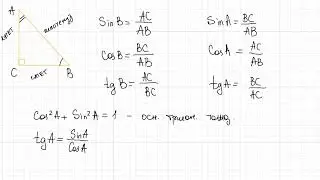 A
катет
гипотенуза
C
катет
B
Sin B = AC/AB
Sin A = BC/AB
Cos B = BC/AB
Cos A = AC/AB
tg B = AC/BC
tg A = BC/AC
Cos²A + Sin²A = 1 - осн. тригон. тожд.
tg A = Sin A/Cos A